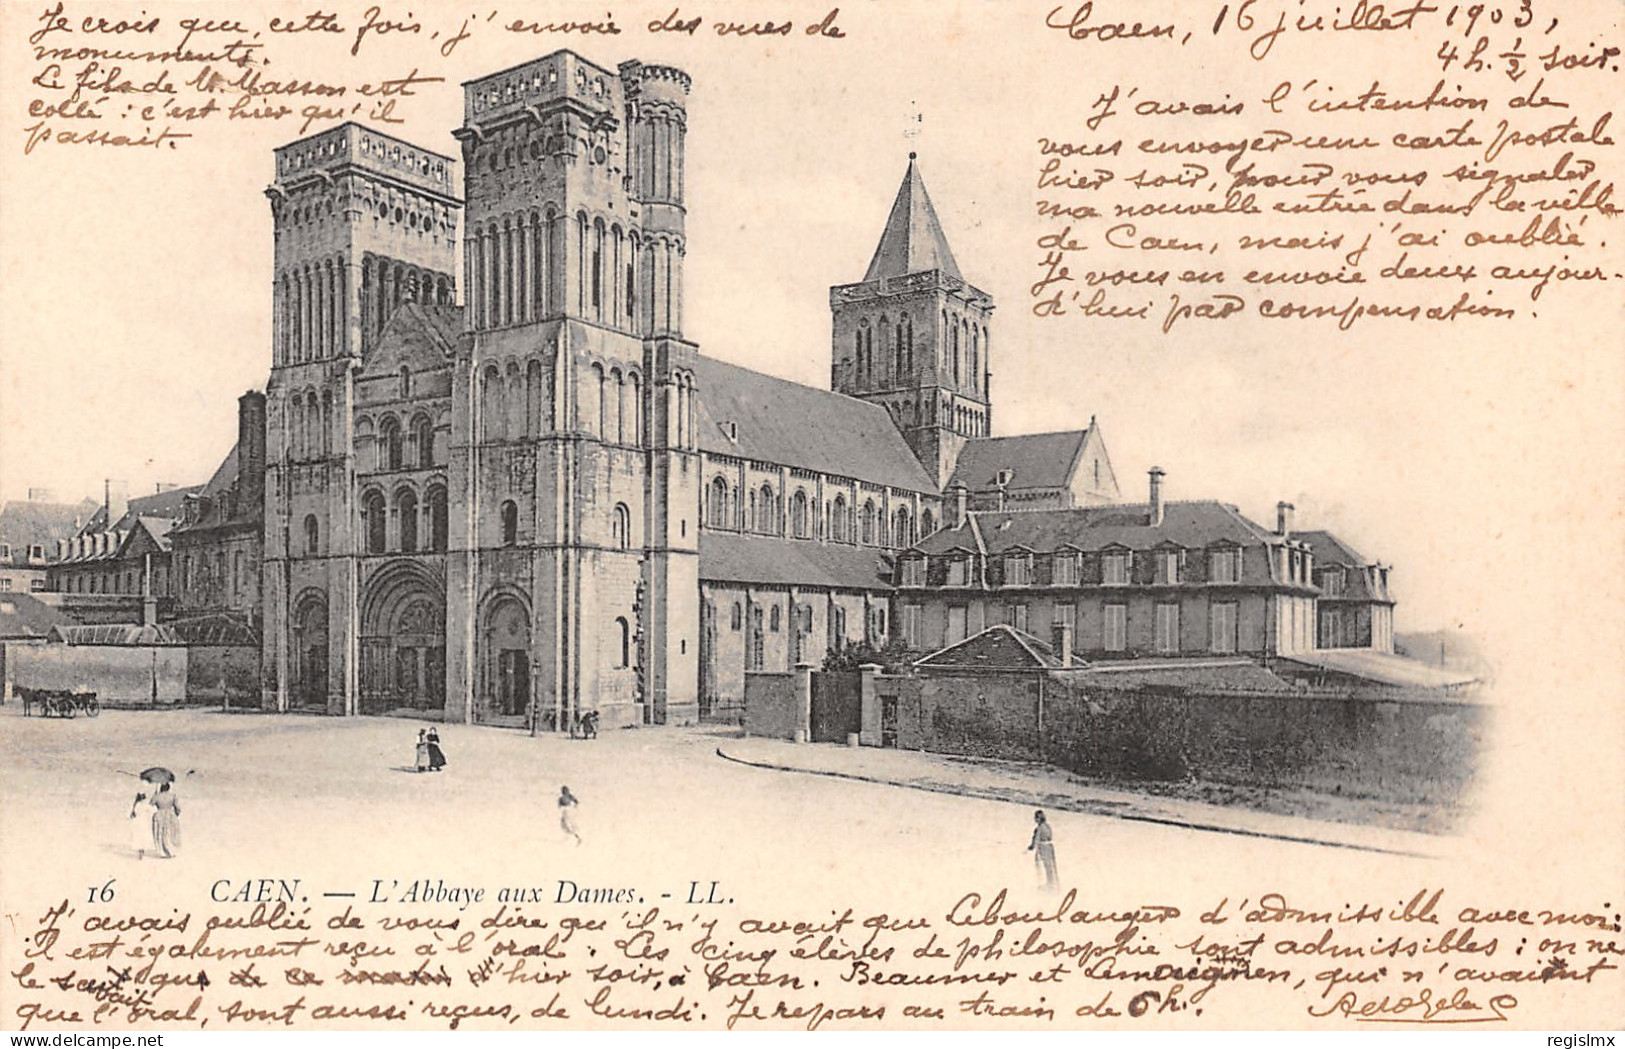 Je crois que, cette fois, j'envoie des vues de
monuments.
Le fils de M. Masson est
collé : c'est hier qu'il
passait.
Caen, 16 juillet 1903,
4 h. ½ soir.
J'avais l'intention de
vous envoyer une carte postale
hier soir, pour vous signaler
ma nouvelle entrée dans la ville
de Caen, mais j'ai oublié.
Je vous en envoie deux aujour-
d'hui par compensation.
16 CAEN. — L'Abbaye aux Dames. - LL.
J'avais oublié de vous dire qu'il n'y avait que Leboulanger d'admissible avec moi :
il est également reçu à l'oral. Les cinq élèves de philosophie sont admissibles : on ne
le savait que d'hier soir, à Caen. Beaumer et qui n'avaient
que l'oral, sont aussi reçus, de lundi. Je repars au train de 6 h.
regislmx